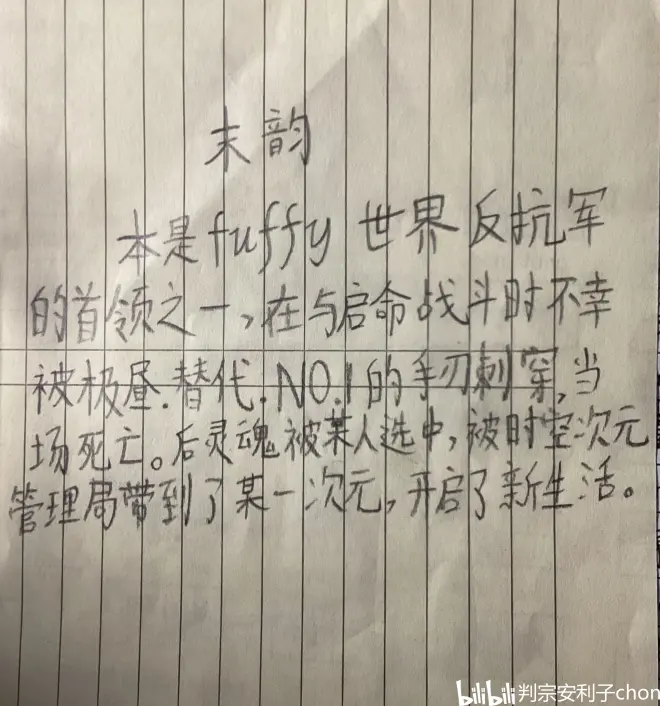 末韵
本是fuffy 世界反抗军
的首领之一,在与启命战斗时不幸
被极昼.替代.NO.1的手刃刺穿,当
场死亡。后灵魂被某人选中,被时空次元
管理局带到了某一次元,开启了新生活。
bilibili 判宗安利子chon